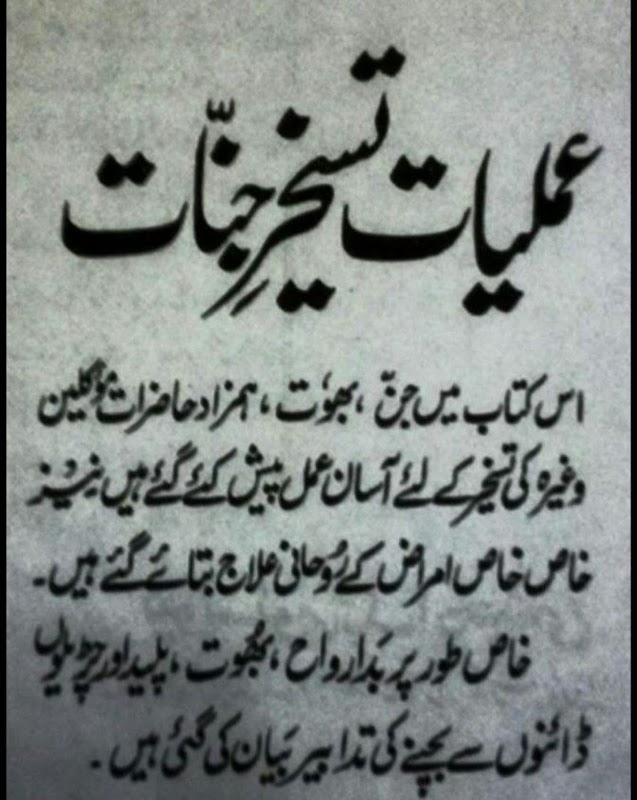 عملیات تسخیرِ جنّات
اس کتاب میں جنّ ، بھوت ، ہمزاد حاضرات مؤکلین
وغیرہ کی تسخیر کے لئے آسان عمل پیش کئے گئے ہیں نیز
خاص خاص امراض کے رُوحانی علاج بتائے گئے ہیں۔
خاص طور پر بَد ارواح ، بھُوت ، پلید اور چڑیلوں
ڈائنوں سے بچنے کی تدابیر بَیان کی گئی ہیں۔